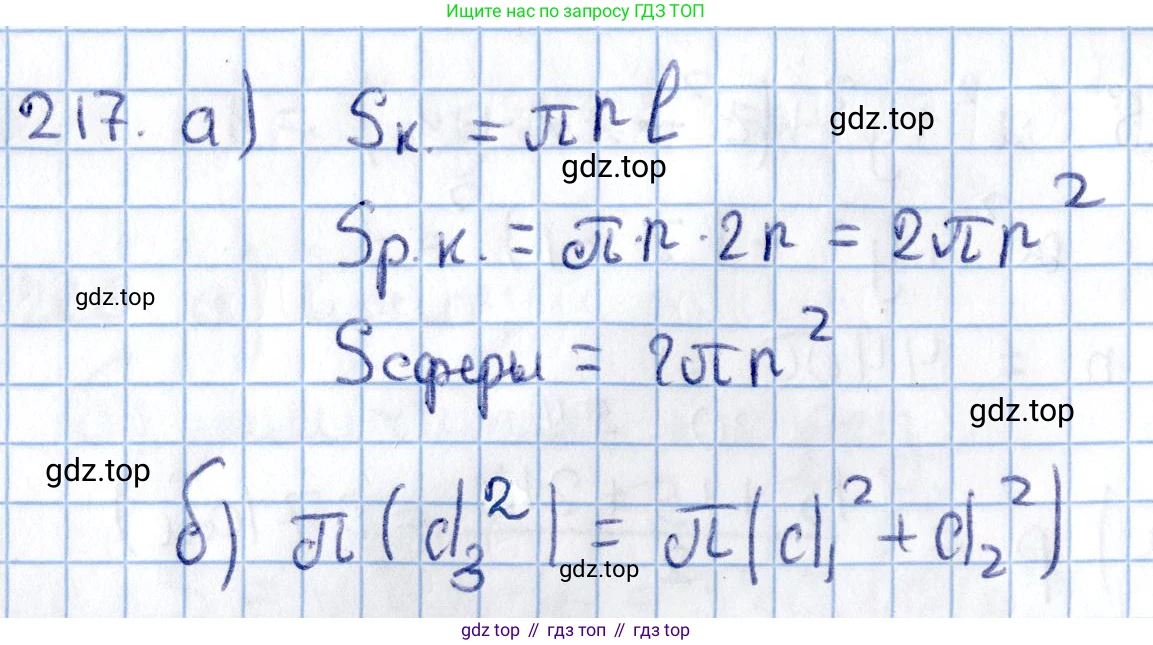 Ищите нас по запросу ГДЗ ТОП
217. а) Sк. = πrl
gdz.top
gdz.top
Sр.к. = π·r·2r = 2πr²
gdz.top
Sсферы = 2πr²
gdz.top
gdz.top
б) π(d₃²) = π(d₁² + d₂²)
gdz.top
gdz top // гдз топ // gdz top